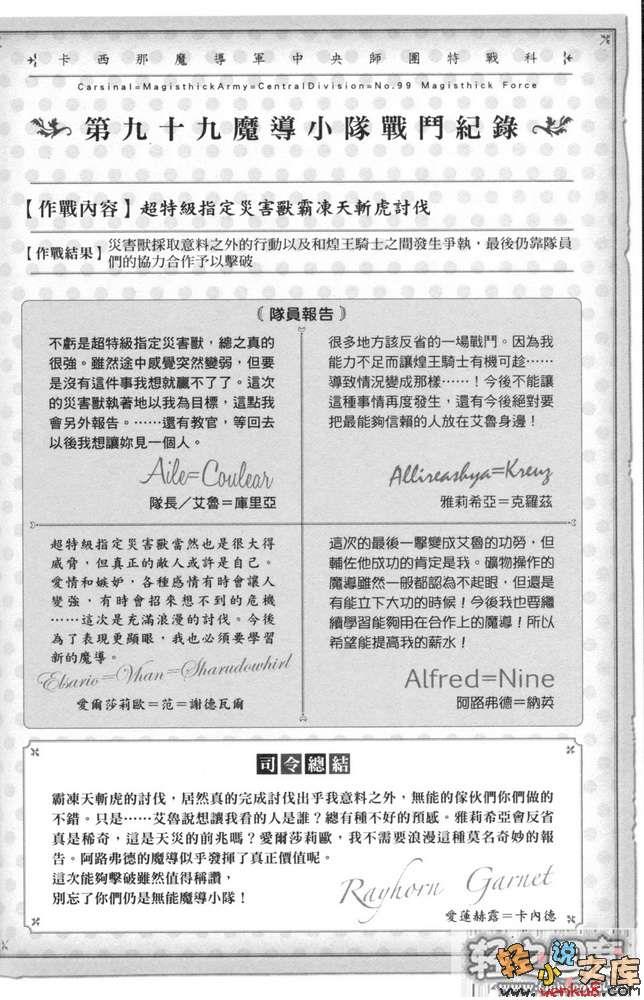 卡西那魔導軍中央師團特戰科
Carsinal=MagisthickArmy=CentralDivision=No.99 Magisthick Force
第九十九魔導小隊戰鬥紀錄
【作戰內容】超特級指定災害獸霸凍天斬虎討伐
【作戰結果】災害獸採取意料之外的行動以及和煌王騎士之間發生爭執,最後仍靠隊員
們的協力合作予以擊破
《隊員報告》
不虧是超特級指定災害獸,總之真的
很強。雖然途中感覺突然變弱,但要
是沒有這件事我想就贏不了了。這次
的災害獸執著地以我為目標,這點我
會另外報告。……還有教官,等回去
以後我想讓妳見一個人。
Aile=Coulear
隊長/艾魯=庫里亞
很多地方該反省的一場戰鬥。因為我
能力不足而讓煌王騎士有機可趁……
導致情況變成那樣……!今後不能讓
這種事情再度發生,還有今後絕對要
把最能夠信賴的人放在艾魯身邊!
Allireashya=Kreuz
雅莉希亞=克羅茲
超特級指定災害獸當然也是很大得
威脅,但真正的敵人或許是自己。
愛情和嫉妒,各種感情有時會讓人
變強,有時會招來想不到的危機
……這次是充滿浪漫的討伐。今後
為了表現更顯眼,我也必須要學習
新的魔導。
Elsario=Vhan=Sharudowhirl
愛爾莎莉歐=范=謝德瓦爾
這次的最後一擊變成艾魯的功勞,但
輔佐他成功的肯定是我。礦物操作的
魔導雖然一般都認為不起眼,但還是
有能立下大功的時候!今後我也要繼
續學習能夠用在合作上的魔導!所以
希望能提高我的薪水!
Alfred=Nine
阿路弗德=納英
司令總結
霸凍天斬虎的討伐,居然真的完成討伐出乎我意料之外,無能的傢伙們你們做的
不錯。只是……艾魯說想讓我看的人是誰?總有種不好的預感。雅莉希亞會反省
真是稀奇,這是天災的前兆嗎?愛爾莎莉歐,我不需要浪漫這種莫名奇妙的報
告。阿路弗德的魔導似乎發揮了真正價值呢。
這次能夠擊破雖然值得稱讚,
別忘了你們仍是無能魔導小隊!
Rayhorn Garnet
愛蓮赫露=卡內德
轻小说文库
www.wenku8.com